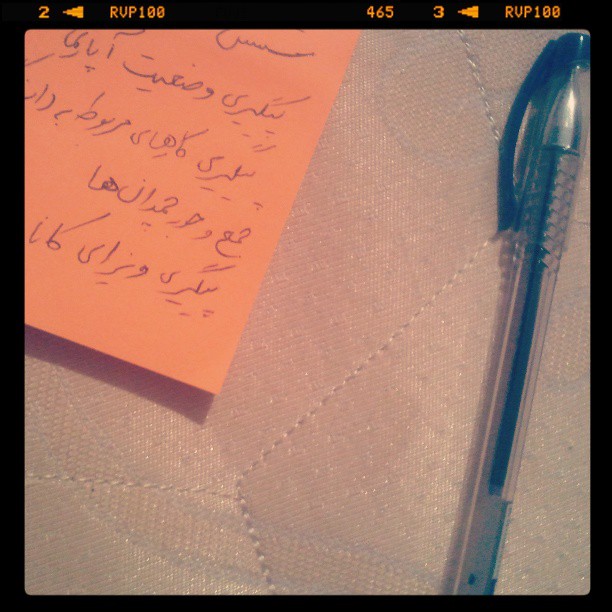 2 ◄ RVP100 465 3 ◄ RVP100
پیگیری وضعیت آپارتما
پیگیری کارهای مربوط به دان
جمع و جور چمدان‌ها
پیگیری ویزای کانا